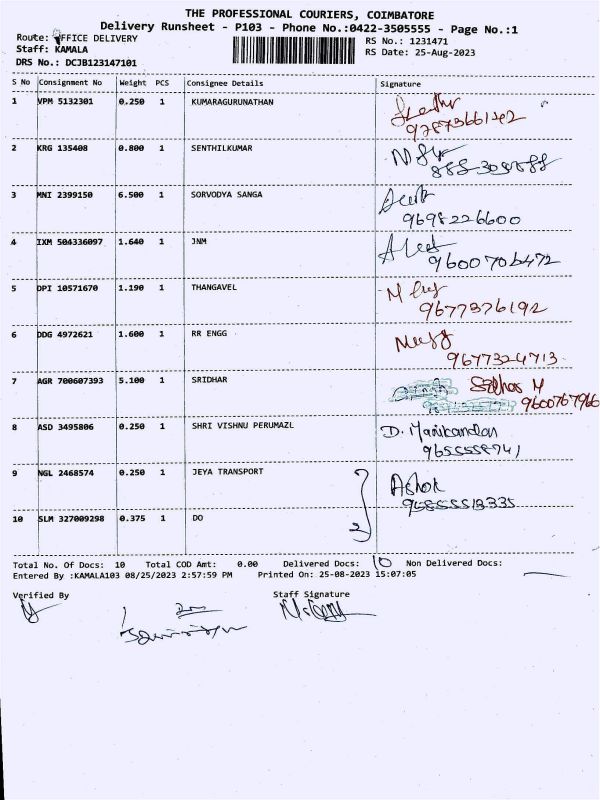 THE PROFESSIONAL COURIERS, COIMBATORE
Delivery Runsheet - P103 - Phone No.:0422-3505555 - Page No.:1
Route: OFFICE DELIVERY RS No.: 1231471
Staff: KAMALA RS Date: 25-Aug-2023
DRS No.: DCJB123147101
S No Consignment No Weight PCS Consignee Details Signature
1 VPM 5132301 0.250 1 KUMARAGURUNATHAN
9787366142
2 KRG 135408 0.800 1 SENTHILKUMAR
3 MNI 2399150 6.500 1 SORVODYA SANGA
9698226600
4 IXM 504336097 1.640 1 JNM
9600706472
5 DPI 10571670 1.190 1 THANGAVEL
9677376192
6 DDG 4972621 1.600 1 RR ENGG
9677324713
7 AGR 700607393 5.100 1 SRIDHAR
9600767966
8 ASD 3495806 0.250 1 SHRI VISHNU PERUMAZL D. Manikandan
9 NGL 2468574 0.250 1 JEYA TRANSPORT Ashok
10 SLM 327009298 0.375 1 DO 2
Total No. Of Docs: 10 Total COD Amt: 0.00 Delivered Docs: 10 Non Delivered Docs:
Entered By :KAMALA103 08/25/2023 2:57:59 PM Printed On: 25-08-2023 15:07:05
Verified By Staff Signature